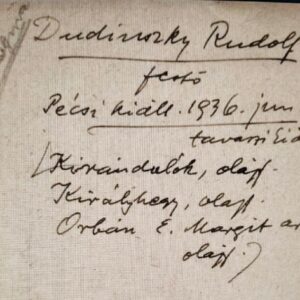 Dudinszky Rudolf
festő
Pécsi kiáll. 1936. jun
tavaszi
(Kirándulók, olajf.
Királyhegy, olajf.
Orbán E. Margit ar
olajf.)